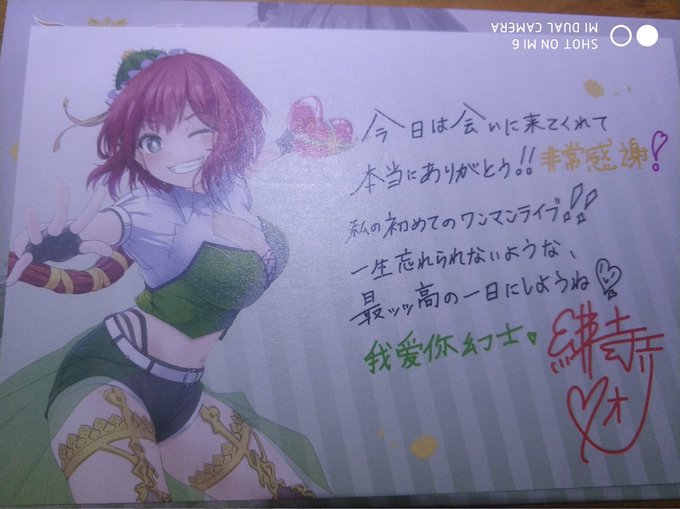 SHOT ON MI 6
MI DUAL CAMERA
今日は会いに来てくれて
本当にありがとう!!非常感谢!
私の初めてのワンマンライブ!!
一生忘れられないような、
最ッッ高の一日にしようね
我爱你幻士